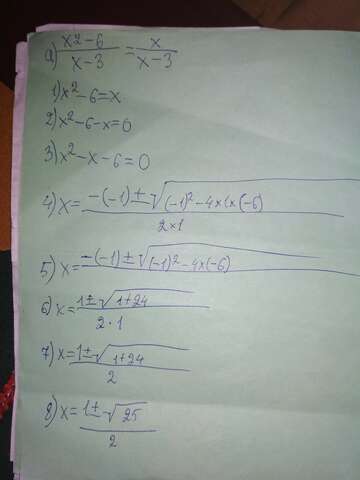 a) x2-6/x-3 = x/x-3
1) x²-6=x
2) x²-6-x=0
3) x²-x-6=0
4) x= -(-1)±√(-1)²-4×1×(-6)/2×1
5) x= -(-1)±√(-1)²-4×(-6)
6) x= 1±√1+24/2·1
7) x= 1±√1+24/2
8) x= 1±√25/2